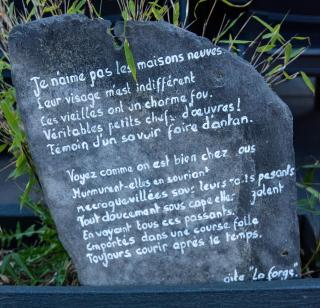 Je n'aime pas les maisons neuves
Leur visage m'est indifférent
Ces vieilles ont un charme fou.
Véritables petits chefs d'œuvres!
Témoin d'un savoir faire d'antan.
Voyez comme on est bien chez ous
Murmurent-elles en souriant
recroquevillées sous leurs toits pesants
Tout doucement sous cape elles galent
En voyant tous ces passants.
Emportés dans une course folle
Toujours courir après le temps.
gîte "La forge".